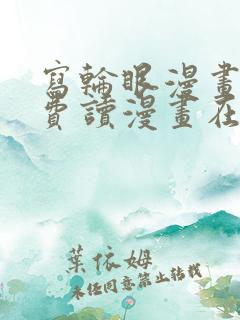 寫輪眼漫畫
費讀漫畫在
葉依姆
未经同意禁止转载